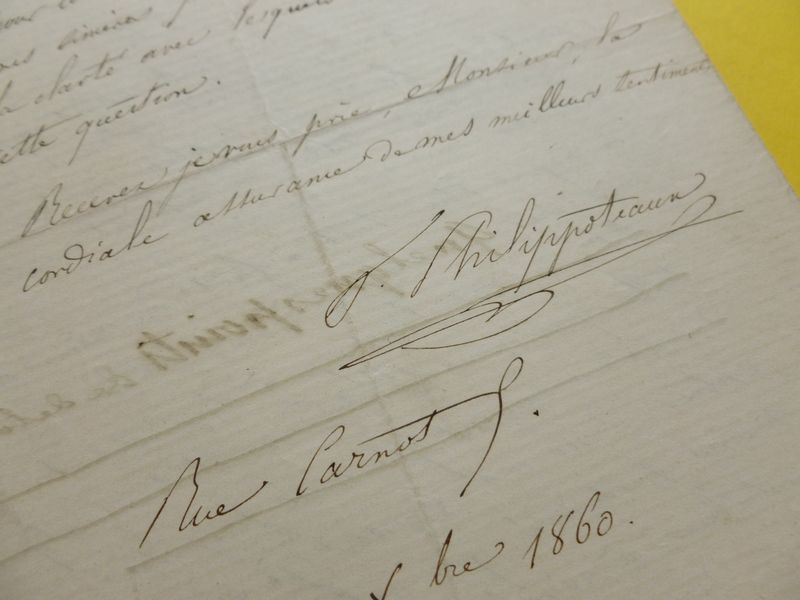 pour
la clarté avec lesquels
cette question.
Recevez je vous prie, Monsieur, la
cordiale assurance de mes meilleurs sentiments
F. Philippoteaux
Rue Carnot 5.
bre 1860.